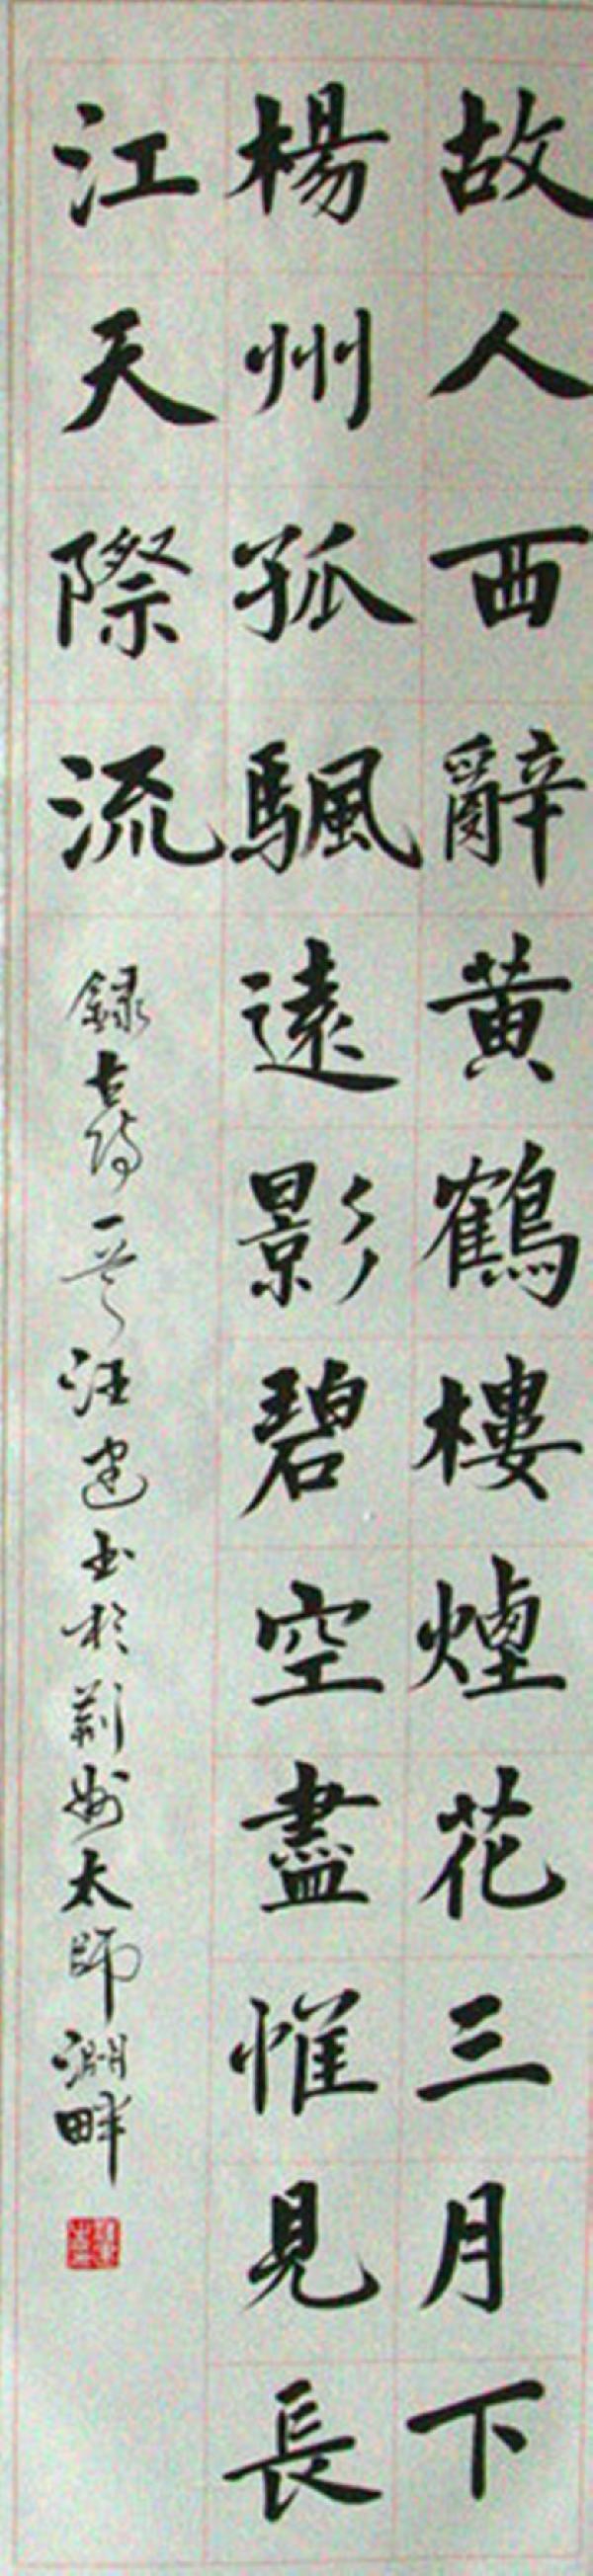 故人西辭黄鶴樓煙花三月下
楊州孤颿遠影碧空盡惟見長
江天際流
録古詩一首汪建書於荆州太師淵畔